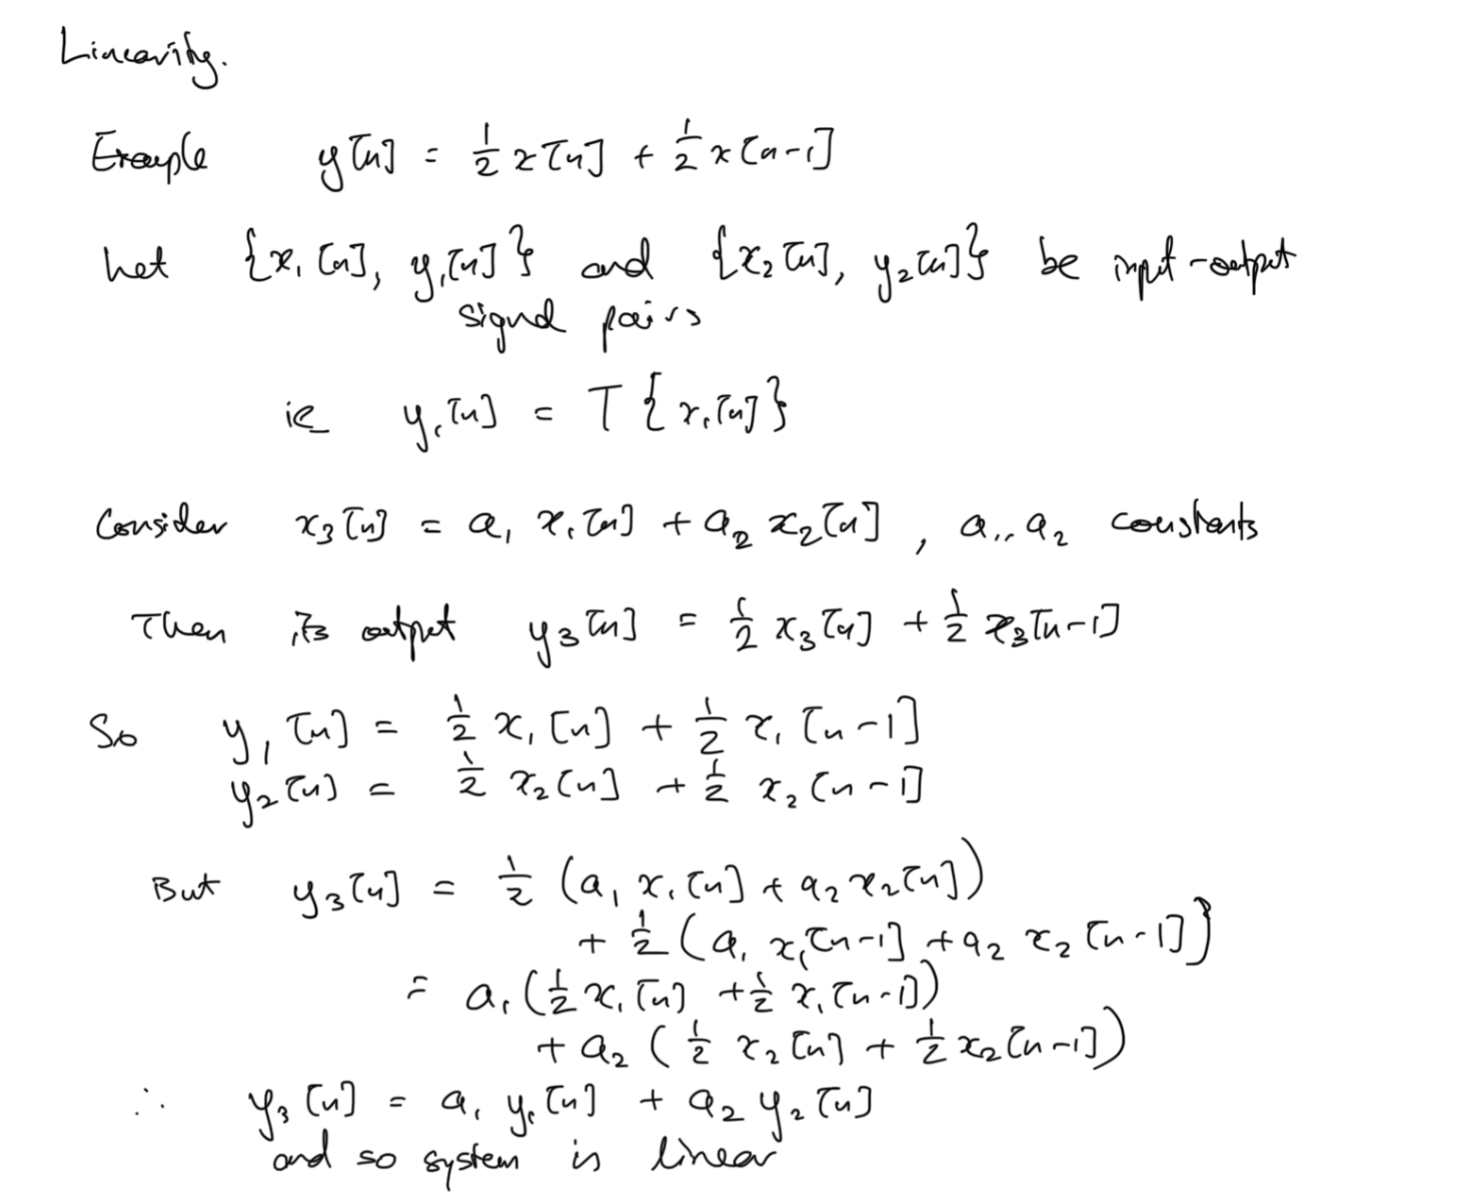 Linearity.
Example y[n] = 1/2 x[n] + 1/2 x[n-1]
Let {x₁[n], y₁[n]} and {x₂[n], y₂[n]} be input-output
signal pairs
ie y₁[n] = T{x₁[n]}
Consider x₃[n] = a₁ x₁[n] + a₂ x₂[n], a₁, a₂ constants
Then its output y₃[n] = 1/2 x₃[n] + 1/2 x₃[n-1]
So y₁[n] = 1/2 x₁[n] + 1/2 x₁[n-1]
y₂[n] = 1/2 x₂[n] + 1/2 x₂[n-1]
But y₃[n] = 1/2 (a₁ x₁[n] + a₂ x₂[n])
+ 1/2 (a₁ x₁[n-1] + a₂ x₂[n-1])
= a₁(1/2 x₁[n] + 1/2 x₁[n-1])
+ a₂ (1/2 x₂[n] + 1/2 x₂[n-1])
∴ y₃[n] = a₁ y₁[n] + a₂ y₂[n]
and so system is linear